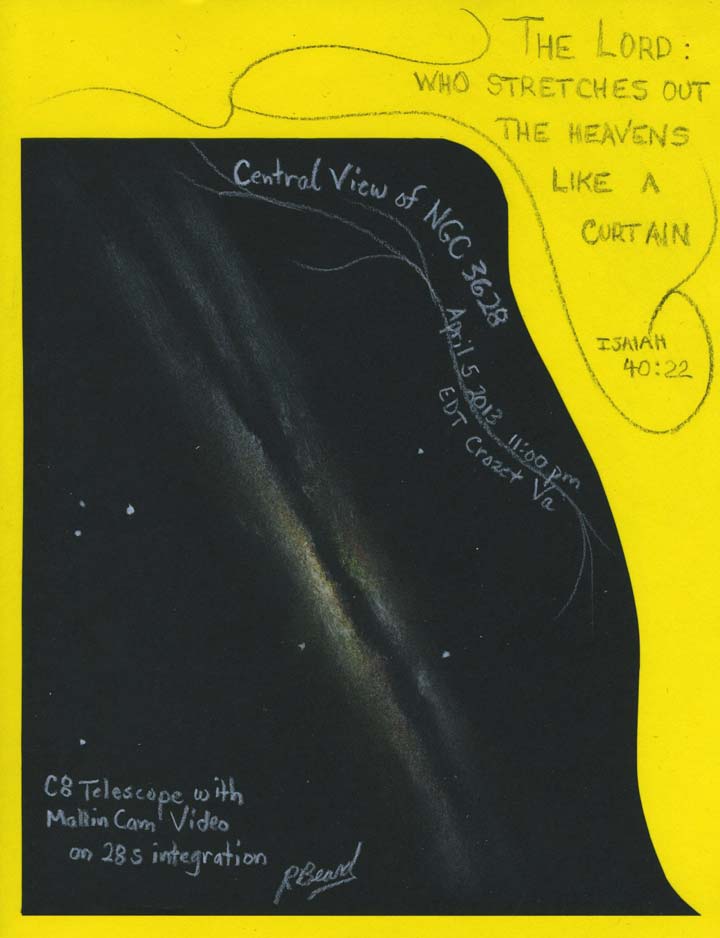 THE LORD:
WHO STRETCHES OUT
THE HEAVENS
LIKE A
CURTAIN
ISAIAH
40:22
Central View of NGC 3628
April 5 2013 11:00 pm
EDT Crozet Va
C8 Telescope with
Mallin Cam Video
on 28s integration
R Beard